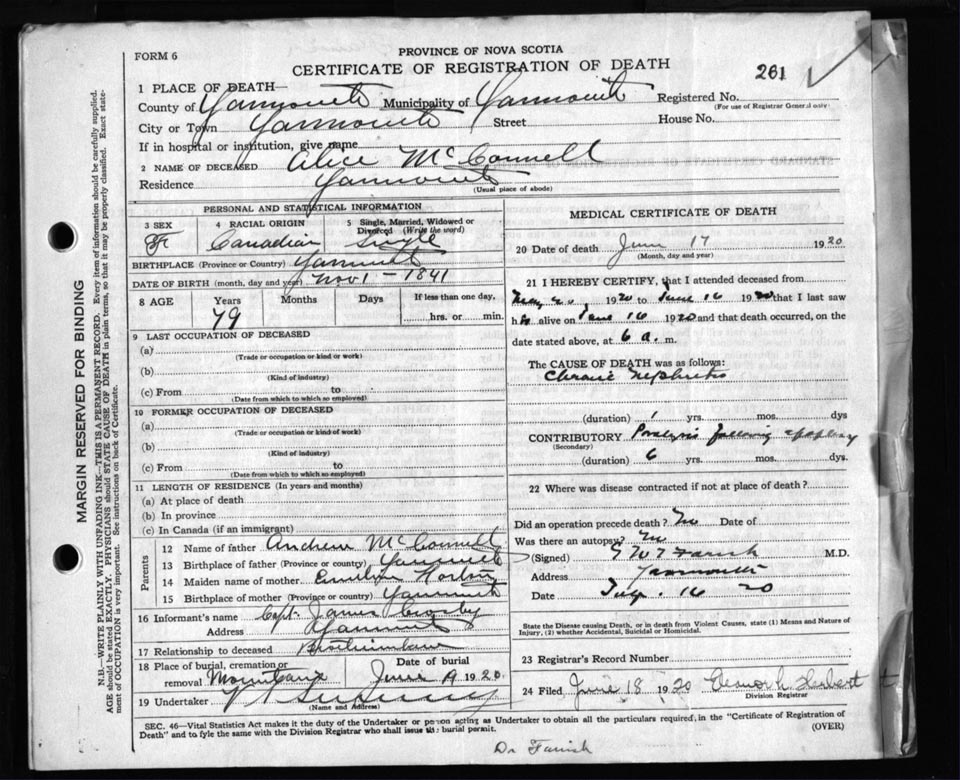 PROVINCE OF NOVA SCOTIA
FORM 6
CERTIFICATE OF REGISTRATION OF DEATH
261
1 PLACE OF DEATH—
County of Yarmouth Municipality of Yarmouth Registered No.
(For use of Registrar General only)
City or Town Yarmouth Street House No.
If in hospital or institution, give name
2 NAME OF DECEASED Alice McConnell
Residence Yarmouth
(Usual place of abode)
PERSONAL AND STATISTICAL INFORMATION
3 SEX 4 RACIAL ORIGIN 5 Single, Married, Widowed or Divorced (Write the word)
F Canadian Single
BIRTHPLACE (Province or Country) Yarmouth
DATE OF BIRTH (month, day and year) Nov 1 - 1841
8 AGE Years Months Days If less than one day,
79 hrs. or min.
9 LAST OCCUPATION OF DECEASED
(a)
(Trade or occupation or kind or work)
(b)
(Kind of industry)
(c) From to
(Date from which to which so employed)
10 FORMER OCCUPATION OF DECEASED
(a)
(Trade or occupation or kind or work)
(b)
(Kind of industry)
(c) From to
(Date from which to which so employed)
11 LENGTH OF RESIDENCE (In years and months)
(a) At place of death
(b) In province
(c) In Canada (if an immigrant)
Parents
12 Name of father Andrew McConnell
13 Birthplace of father (Province or country) Yarmouth
14 Maiden name of mother
15 Birthplace of mother (Province or country) Yarmouth
16 Informant's name Capt. James Crosby
Address Yarmouth
17 Relationship to deceased Brotherinlaw
18 Place of burial, cremation or removal Mountain Date of burial June 19 1920
19 Undertaker
(Name and Address)
MEDICAL CERTIFICATE OF DEATH
20 Date of death June 17 1920
(Month, day and year)
21 I HEREBY CERTIFY, that I attended deceased from
May 20, 1920 to June 16 1920 that I last saw
h alive on June 16 1920 and that death occurred, on the
date stated above, at 6 a. m.
The CAUSE OF DEATH was as follows:
Chronic Nephritis
(duration) 1 yrs. mos. dys
CONTRIBUTORY Paralysis following apoplexy
(Secondary)
(duration) 6 yrs. mos. dys.
22 Where was disease contracted if not at place of death?
Did an operation precede death? No Date of
Was there an autopsy? No
(Signed) Farish M.D.
Address Yarmouth
Date 16 20
State the Disease causing Death, or in death from Violent Causes, state (1) Means and Nature of
Injury, (2) whether Accidental, Suicidal or Homicidal.
23 Registrar's Record Number
24 Filed June 18 1920 Eleanor L Herbert
Division Registrar
SEC. 46—Vital Statistics Act makes it the duty of the Undertaker or person acting as Undertaker to obtain all the particulars required, in the "Certificate of Registration of
Death" and to fyle the same with the Division Registrar who shall issue the burial permit. (OVER)
Dr Farish
MARGIN RESERVED FOR BINDING
N.B.—WRITE PLAINLY WITH UNFADING INK—THIS IS A PERMANENT RECORD. Every item of information should be carefully supplied.
AGE should be stated EXACTLY. PHYSICIANS should STATE CAUSE OF DEATH in plain terms, so that it may be properly classified. Exact state-
ment of OCCUPATION is very important. See instructions on back of Certificate.